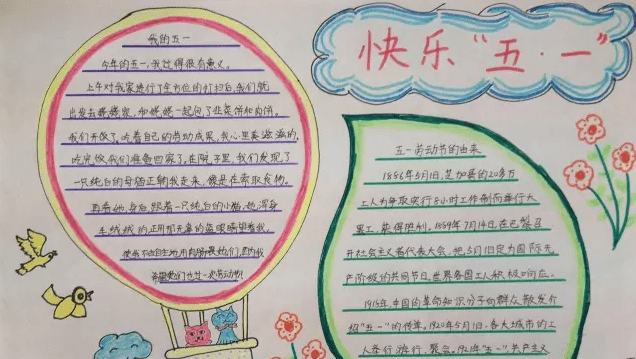 快乐“五·一”
我的五一
今年的五一,我过得很有意义。
上午对我家进行了全方位的打扫后,我们就
出发去姥姥家,和姥姥一起包了韭菜饼和肉饼。
我们开饭了,吃着自己的劳动成果,我心里美滋滋的。
吃完饭我们准备回家了,在院子里,我们发现了
一只纯白的母猫正朝我走来,像是在索取食物。
再看她,身后跟着一只纯白的小猫,她浑身
毛绒绒的,正用那无辜的蓝眼睛望着我,
使我不由自主地用肉饼喂她们,因为我
希望她们也过一次劳动节!
五一劳动节的由来
1886年5月1日,芝加哥的20多万
工人为争取实行8小时工作制而举行大
罢工,获得胜利。1889年7月14日,在巴黎召
开社会主义者代表大会,把5月1日定为国际无
产阶级的共同节日,世界各国工人积极响应。
1918年,中国的革命知识分子向群众散发介
绍“五一”的传单。1920年5月1日,各大城市的工
人举行游行、聚会。1921年“五一”,共产主义